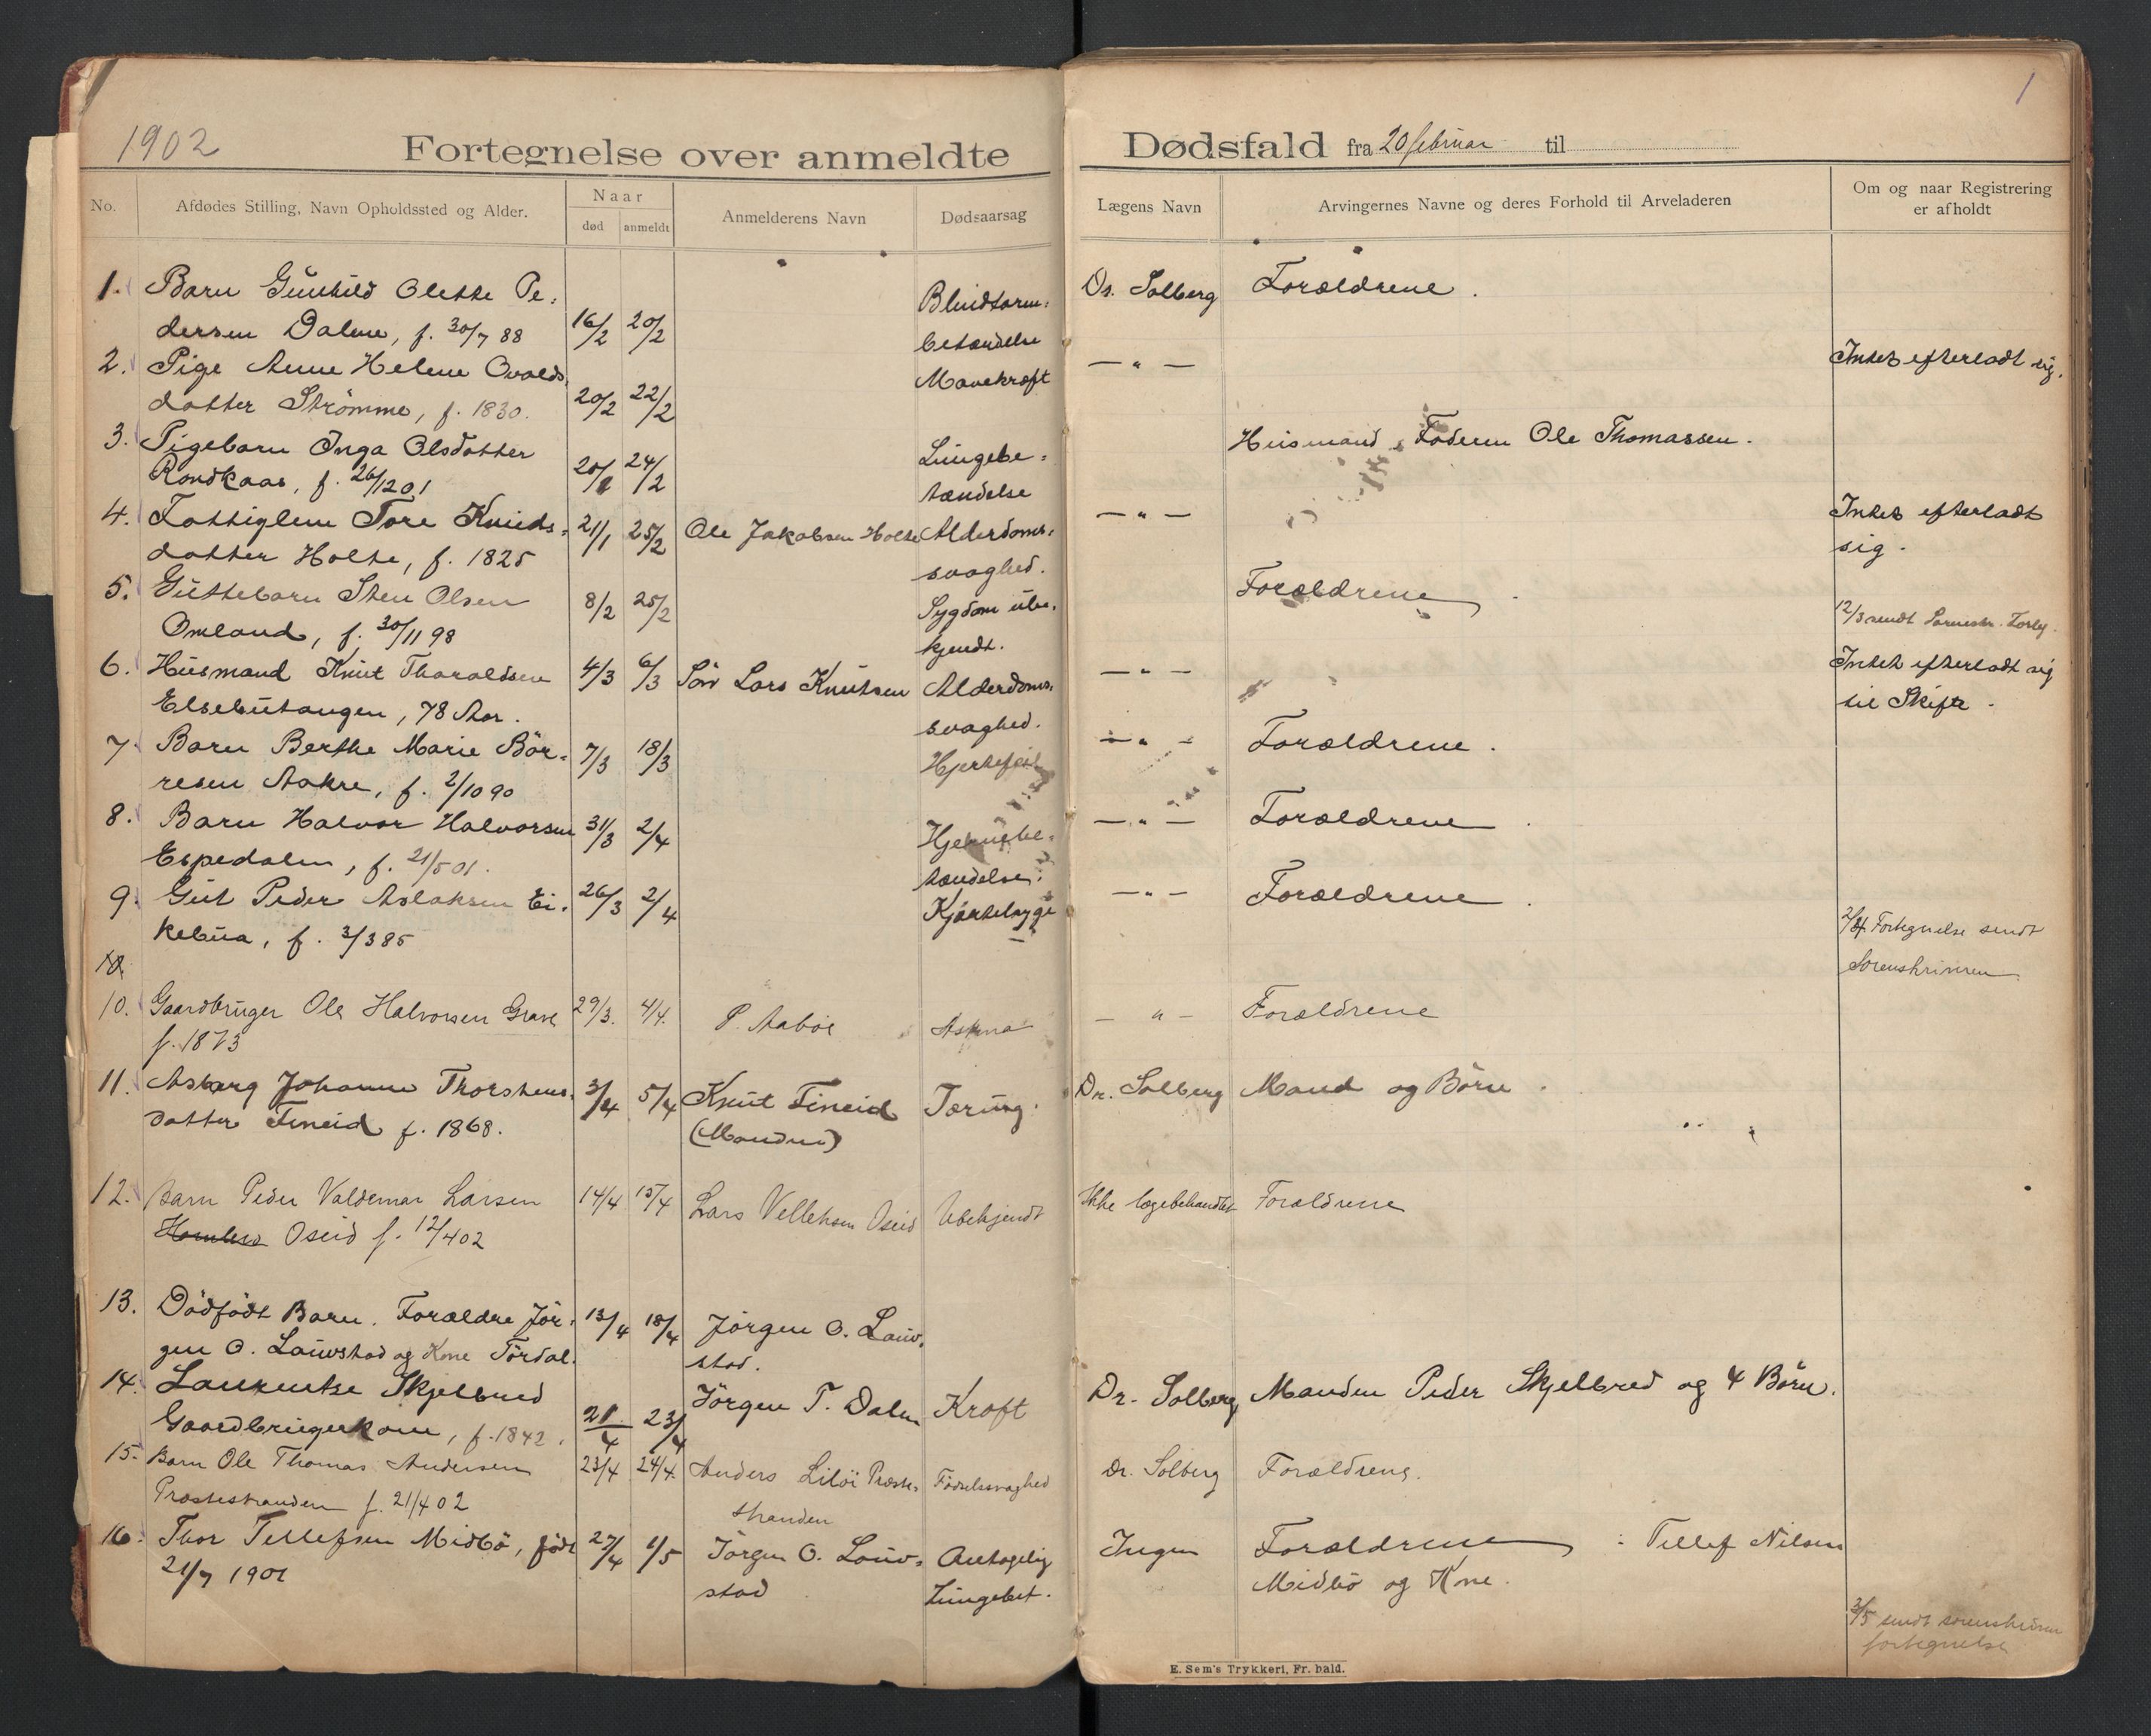 1
1902
Fortegnelse over anmeldte Dødsfald fra 20 februar til
No. Afdødes Stilling, Navn Opholdssted og Alder. Naar død anmeldt Anmelderens Navn Dødsaarsag Lægens Navn Arvingernes Navne og deres Forhold til Arveladeren Om og naar Registrering er afholdt
1. Barn Gunhild Olette Pe= Blindtarm= Dr. Solberg Forældrene.
dersen Dalene, f. 30/7 88 16/2 20/2 betændelse
2. Pige Anne Helene Osvalds Mavekræft — " — Intet efterladt sig.
datter Strömme, f. 1830. 20/2 22/2
3. Pigebarn Inga Olsdatter Lungebe= Husmand, Faderen Ole Thomassen.
Rondkaas, f. 26/12 01 20/1 24/2 tændelse
4. Fattiglem Tore Knuds= 21/1 25/2 Ole Jakobsen Holte Alderdoms= — " — Intet efterladt
datter Holte, f. 1825 svaghed. sig.
5. Guttebarn Sten Olsen 8/2 25/2 Sygdom ube= Forældrene.
Omland, f. 30/11 98 kjendt. 12/3 sendt
6. Husmand Knut Tharaldsen 4/3 6/3 Sön Lars Knutsen Alderdoms= — " — Intet efterladt sig
Elsebutangen, 78 Aar. svaghed. til Skifte.
7. Barn Berthe Marie Bör= 7/3 18/3 Hjertefeil — " — Forældrene.
resen Aakre, f. 2/10 90
8. Barn Halvor Halvorsen 31/3 2/4 Hjernebe= — " — Forældrene.
Espedalen, f. 21/5 01. tændelse.
9. Gut Peder Aslaksen Ei= 26/3 2/4 Kjertelsyge — " — Forældrene.
kebua, f. 3/3 85
2/4 Fortegnelse sendt
Sorenskriveren
10. Gaardbruger Ole Halvorsen Grave 29/3. 4/4. P. Aaböe Astma — " — Forældrene
f. 1873
11. Asbørg Johanne Thorstens= 3/4 5/4 Knut Fineid Tæring. Dr. Solberg Mand og Börn.
datter Fineid f. 1868. (Manden)
12. Barn Peder Valdemar Larsen 14/4 15/4 Lars Vellehsen Oseid Ubekjendt Ikke lægebehandlet Forældrene
Oseid f. 12/4 02
13. Dödfödt Barn. Forældre Jör= 13/4 18/4 Jörgen O. Lauv=
gen O. Lauvstad og Kone Tördal. stad.
14. Laurentse Skjelbred Jörgen T. Dalen Kræft Dr. Solberg Manden Peder Skjelbred og 4 Börn.
Gaardbrugerkone, f. 1842. 21/4 23/4
15. Barn Ole Thomas Andersen 23/4 24/4. Anders Lilöi Præste= Födselssvaghed Dr. Solberg Forældrene.
Præstestranden f. 21/4 02 stranden
16. Thor Tellefsen Midbö, född 27/4 1/5 Jörgen O. Lauv= Antagelig Ingen Forældrene : Tellef Nilsen
21/7 1901 stad Lungebet. Midbö og Kone.
3/5 sendt sorenskriveren
fortegnelse
E. Sem's Trykkeri, Fr. hald.